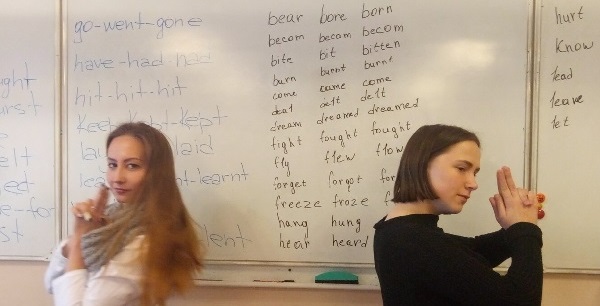 go-went-gone
have-had-had
hit-hit-hit
Kept
laid
learnt
bear bore born
becom becom becom
bite bit bitten
burn burnt burnt
come came come
deal delt delt
dream dreamed dreamed
fight fought fought
fly flew flow
forget forgot for
freeze froze f
hang hung
hear heard
hurt
Know
lead
leave
let